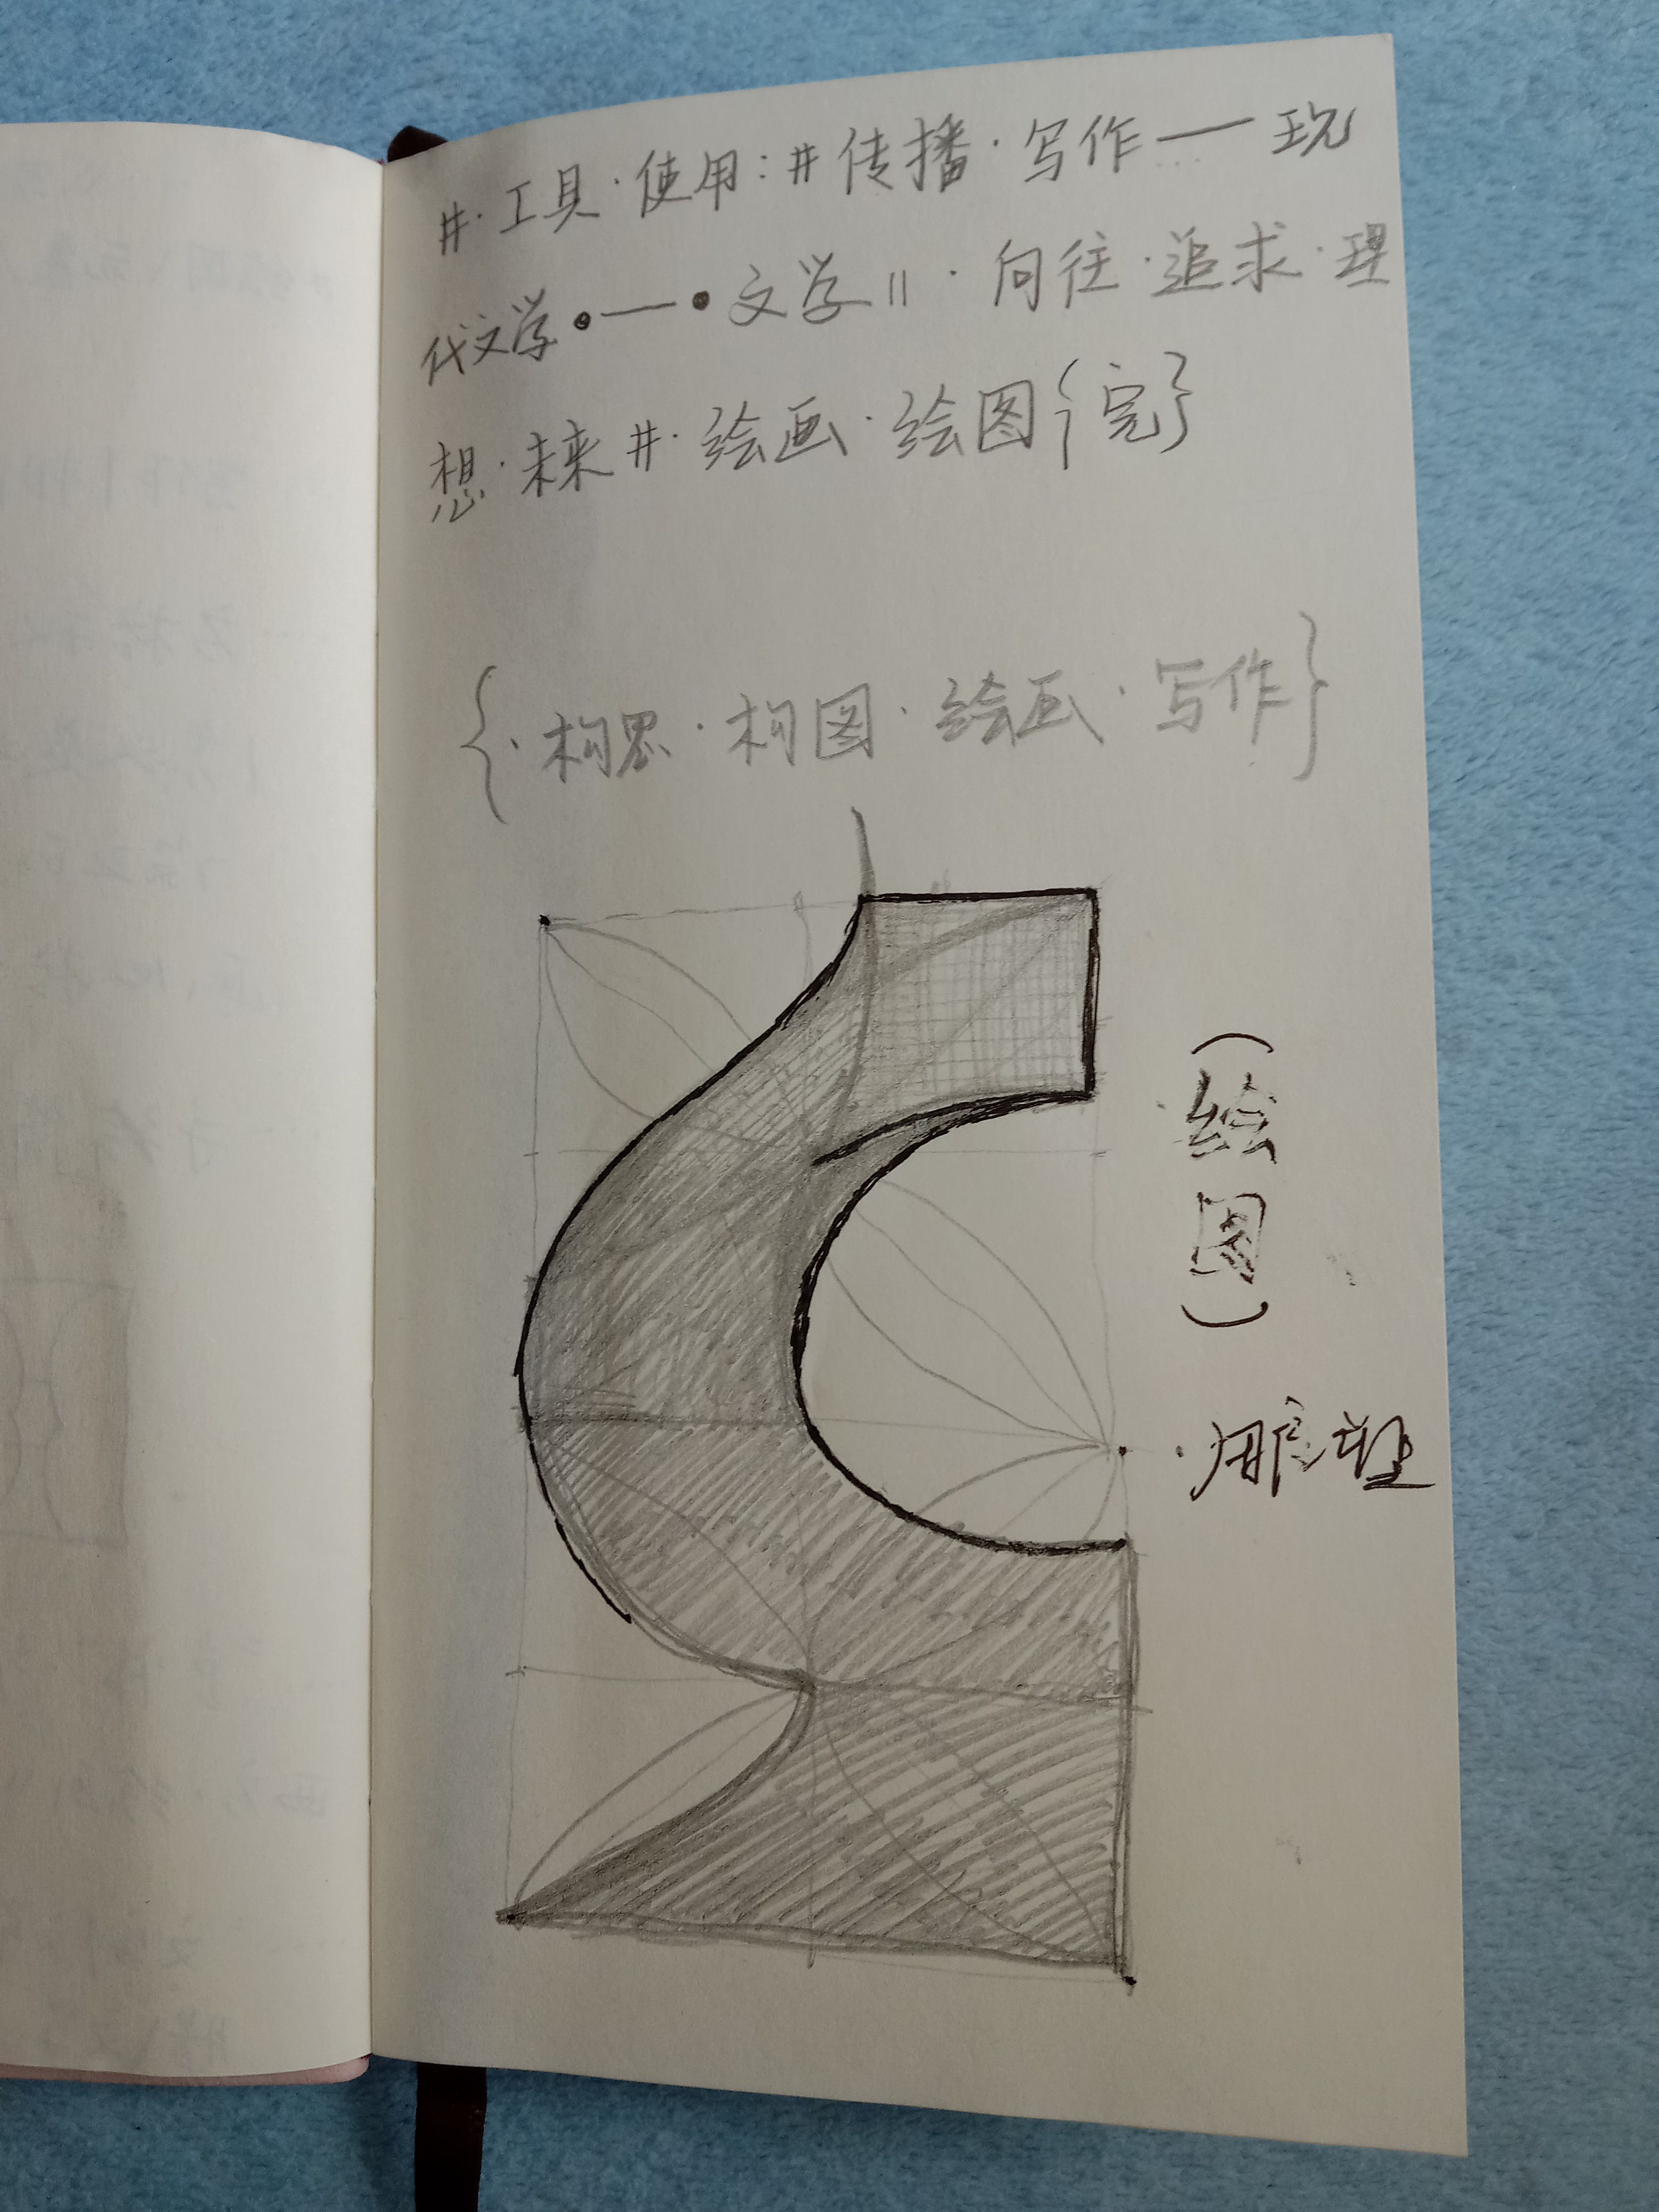 #·工具·使用:#传播·写作——现
代文学●—●文学॥·向往·追求·理
想·未来#·绘画·绘图{完}
{·构思·构图·绘画·写作}
(绘图)